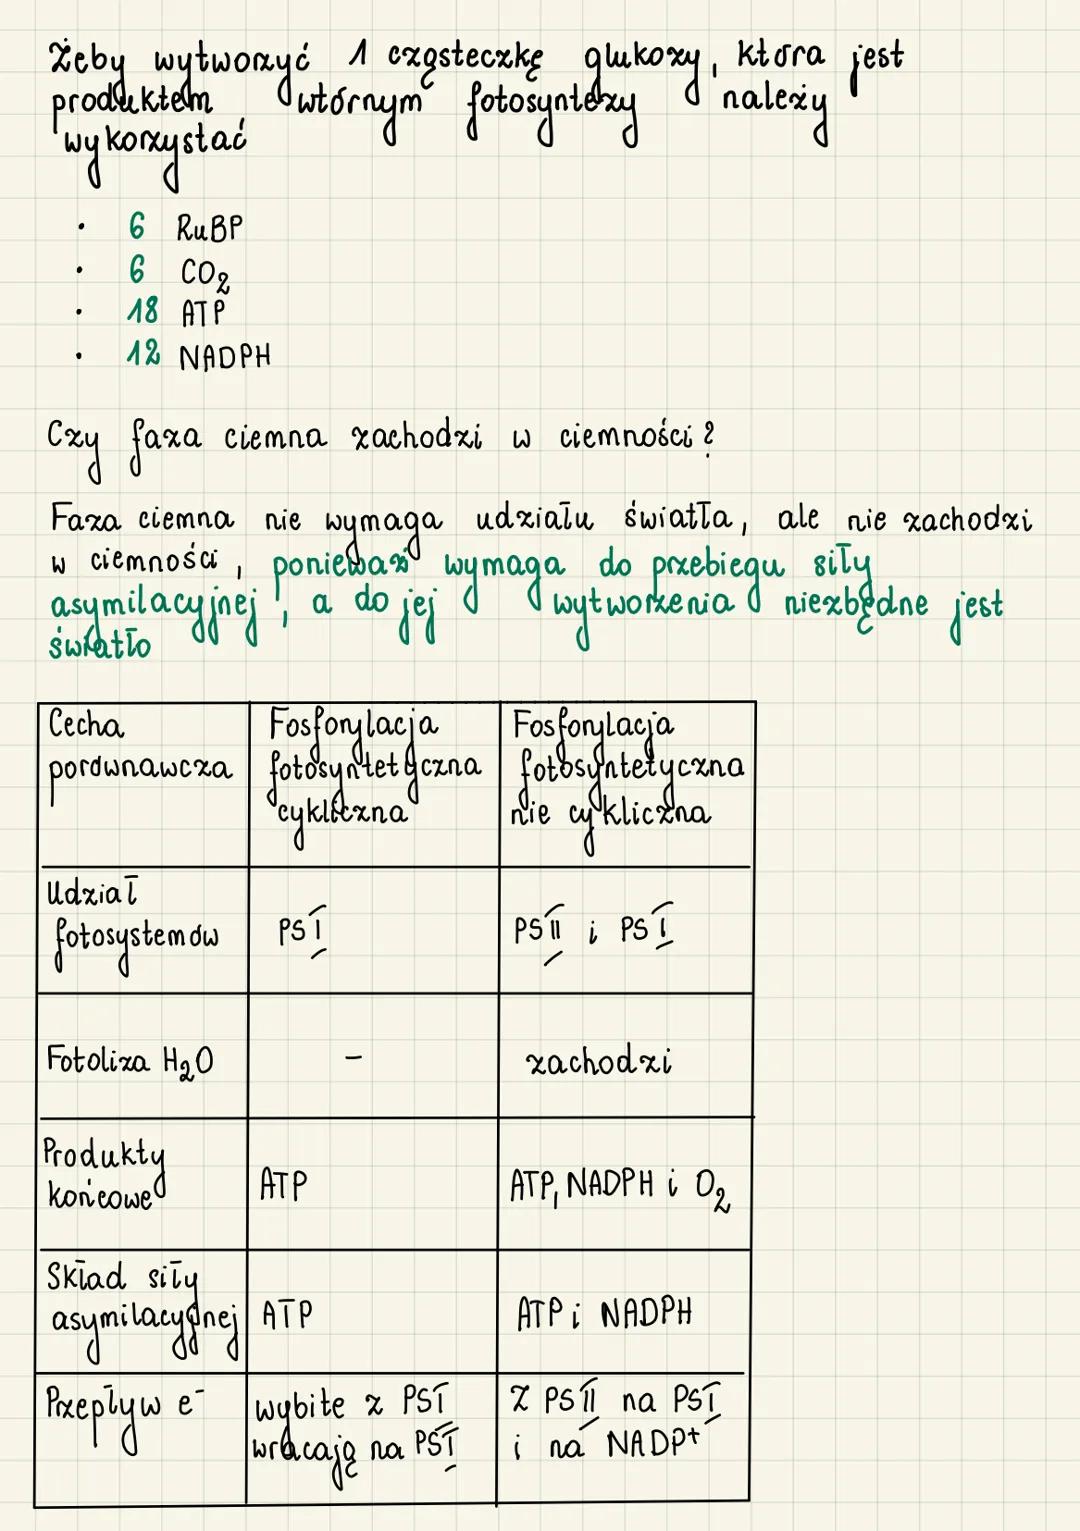 Żeby wytworzyć 1 cząsteczkę glukozy, która jest
produktem wtórnym fotosyntezy należy
wykorzystać
• 6 RuBP
• 6 CO2
• 18 ATP
• 12 NADPH
Czy faza ciemna zachodzi w ciemności?
Faza ciemna nie wymaga udziału światła, ale nie zachodzi
w ciemności, ponieważ wymaga do przebiegu siły
asymilacyjnej, a do jej wytworzenia niezbędne jest
światło
Cecha porównawcza
Fosforylacja fotosyntetyczna cykliczna
Fosforylacja fotosyntetyczna nie cykliczna
Udział fotosystemów
PS I
PS II i PS I
Fotoliza H2O
-
zachodzi
Produkty końcowe
ATP
ATP, NADPH i O2
Skład siły asymilacyjnej
ATP
ATP i NADPH
Przepływ e-
wybite z PS I
wracają na PS I
Z PS II na PS I
i na NADP+